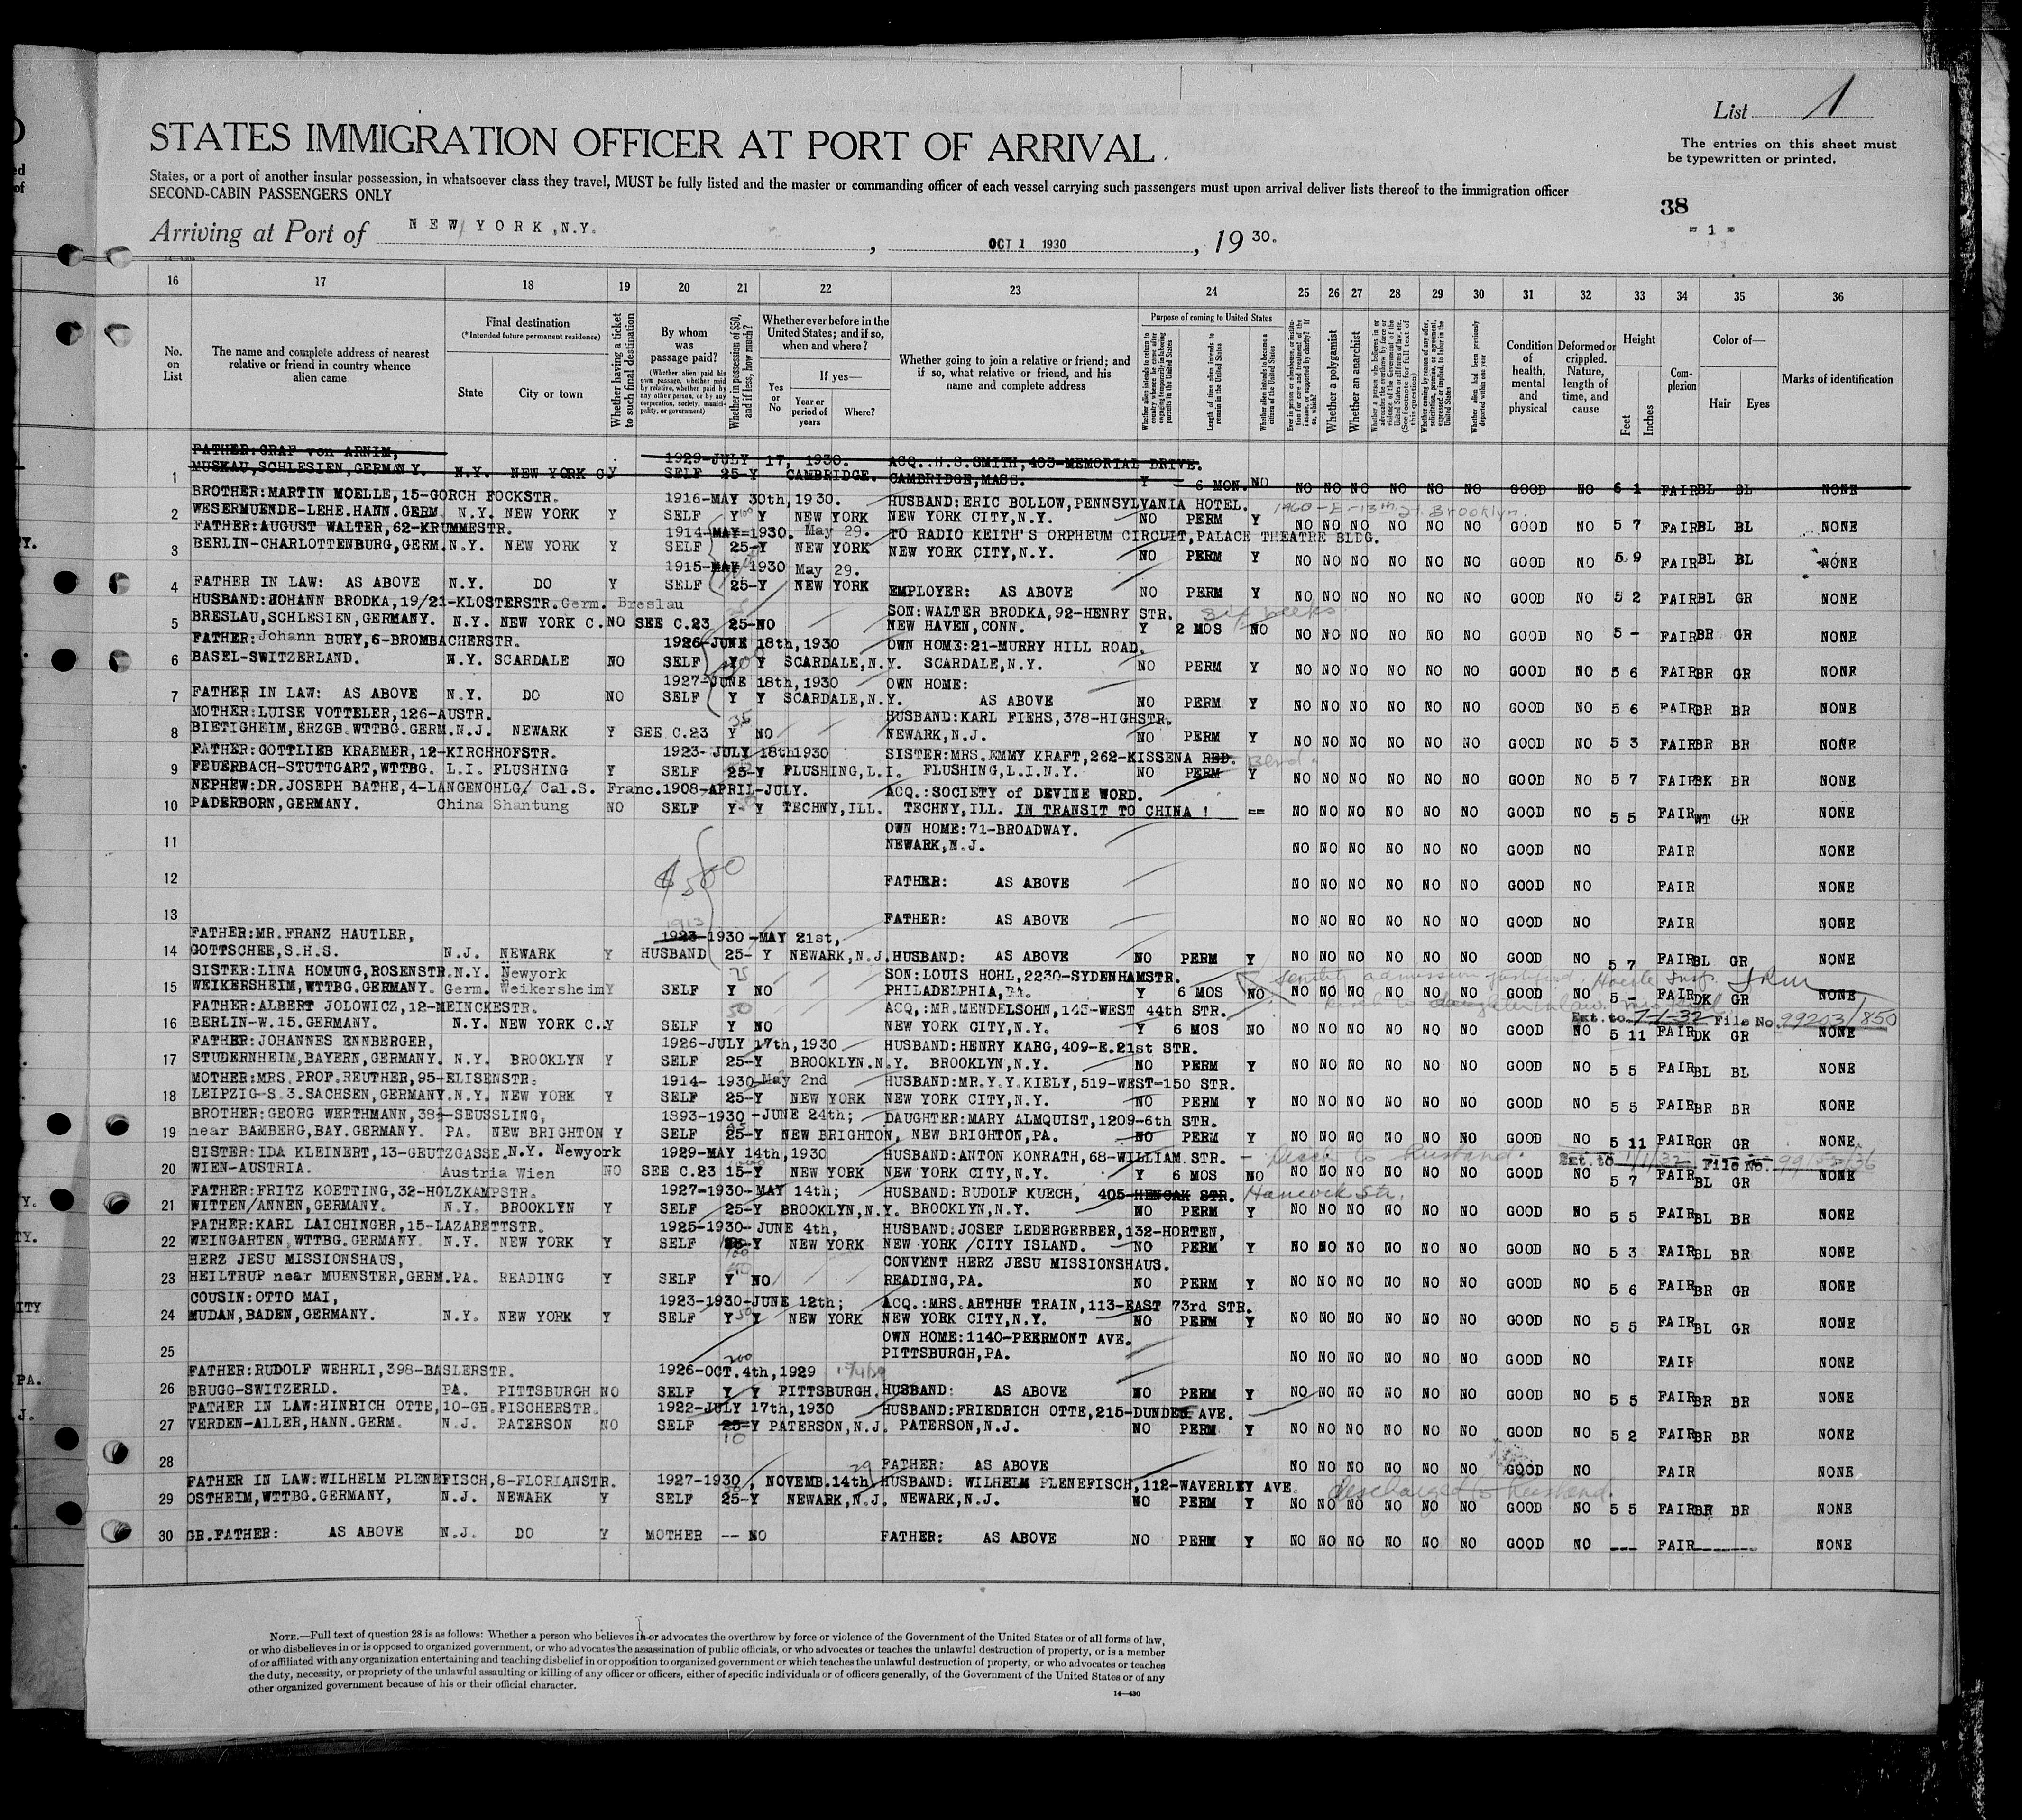 List 1
STATES IMMIGRATION OFFICER AT PORT OF ARRIVAL
The entries on this sheet must
be typewritten or printed.
States, or a port of another insular possession, in whatsoever class they travel, MUST be fully listed and the master or commanding officer of each vessel carrying such passengers must upon arrival deliver lists thereof to the immigration officer
SECOND-CABIN PASSENGERS ONLY
38
- 1 -
Arriving at Port of NEW YORK, N.Y. , OCT 1 1930 , 19 30.
16 17 18 19 20 21 22 23 24 25 26 27 28 29 30 31 32 33 34 35 36
No. on List
The name and complete address of nearest relative or friend in country whence alien came
Final destination
(*Intended future permanent residence)
State City or town
Whether having a ticket to such final destination
By whom was passage paid?
(Whether alien paid his own passage, whether paid by relative, whether paid by any other person, or by any corporation, society, municipality, or government)
Whether in possession of $50, and if less, how much?
Whether ever before in the United States; and if so, when and where?
Yes or No
If yes—
Year or period of years
Where?
Whether going to join a relative or friend; and if so, what relative or friend, and his name and complete address
Purpose of coming to United States
Length of time alien intends to remain in the United States
Whether alien intends to become a citizen of the United States
Whether a polygamist
Whether an anarchist
Condition of health, mental and physical
Deformed or crippled. Nature, length of time, and cause
Height
Feet Inches
Complexion
Color of—
Hair Eyes
Marks of identification
FATHER:GRAF von ARNIM, 1929-JULY 17, 1930. ACQ.:H.S.SMITH,405-MEMORIAL DRIVE.
1 MUSKAU,SCHLESIEN,GERMANY. N.Y. NEW YORK C Y SELF 25-Y CAMBRIDGE. CAMBRIDGE,MASS. Y 6 MON. NO NO NO NO NO NO NO GOOD NO 6 1 FAIR BL BL NONE
BROTHER:MARTIN MOELLE,15-GORCH FOCKSTR. 1916-MAY 30th,1930. HUSBAND:ERIC BOLLOW,PENNSYLVANIA HOTEL. 1460-E-13th St. Brooklyn.
2 WESERMUENDE-LEHE.HANN.GERM. N.Y. NEW YORK Y SELF Y Y NEW YORK NEW YORK CITY,N.Y. NO PERM Y NO NO NO NO NO NO GOOD NO 5 7 FAIR BL BL NONE
FATHER:AUGUST WALTER,62-KRUMMESTR. 1914-MAY-1930. May 29. TO RADIO KEITH'S ORPHEUM CIRCUIT,PALACE THEATRE BLDG.
3 BERLIN-CHARLOTTENBURG,GERM. N.Y. NEW YORK Y SELF 25-Y NEW YORK NEW YORK CITY,N.Y. NO PERM Y NO NO NO NO NO NO GOOD NO 5 9 FAIR BL BL NONE
1915-MAY 1930 May 29.
4 FATHER IN LAW: AS ABOVE N.Y. DO Y SELF 25-Y NEW YORK EMPLOYER: AS ABOVE NO PERM Y NO NO NO NO NO NO GOOD NO 5 2 FAIR BL GR NONE
HUSBAND:JOHANN BRODKA,19/21-KLOSTERSTR. Germ. Breslau SON:WALTER BRODKA,92-HENRY STR.
5 BRESLAU,SCHLESIEN,GERMANY. N.Y. NEW YORK C. NO SEE C.23 25-NO NEW HAVEN,CONN. Y 2 MOS NO NO NO NO NO NO NO GOOD NO 5 - FAIR BR GR NONE
FATHER:Johann BURY,6-BROMBACHERSTR. 1926-JUNE 18th,1930 OWN HOME:21-MURRY HILL ROAD.
6 BASEL-SWITZERLAND. N.Y. SCARDALE NO SELF Y Y SCARDALE,N.Y. SCARDALE,N.Y. NO PERM Y NO NO NO NO NO NO GOOD NO 5 6 FAIR BR GR NONE
1927-JUNE 18th,1930 OWN HOME:
7 FATHER IN LAW: AS ABOVE N.Y. DO NO SELF Y Y SCARDALE,N.Y. AS ABOVE NO PERM Y NO NO NO NO NO NO GOOD NO 5 6 FAIR BR BR NONE
MOTHER:LUISE VOTTELER,126-AUSTR. 35 HUSBAND:KARL FIEHS,378-HIGHSTR.
8 BIETIGHEIM,ERZGB.WTTBG.GERM. N.J. NEWARK Y SEE C.23 Y NO NEWARK,N.J. NO PERM Y NO NO NO NO NO NO GOOD NO 5 3 FAIR BR BR NONE
FATHER:GOTTLIEB KRAEMER,12-KIRCHHOFSTR. 1923-JULY 18th1930 SISTER:MRS.EMMY KRAFT,262-KISSENA RED. Blvd.
9 FEUERBACH-STUTTGART,WTTBG. L.I. FLUSHING Y SELF 25-Y FLUSHING,L.I. FLUSHING,L.I.N.Y. NO PERM Y NO NO NO NO NO NO GOOD NO 5 7 FAIR BK BR NONE
NEPHEW:DR.JOSEPH BATHE,4-LANGENOHLG/ Cal.S. Franc. 1908-APRIL-JULY. ACQ.:SOCIETY of DEVINE WORD.
10 PADERBORN,GERMANY. China Shantung NO SELF Y-Y TECHNY,ILL. TECHNY,ILL. IN TRANSIT TO CHINA ! == NO NO NO NO NO NO GOOD NO 5 5 FAIR WT GR NONE
OWN HOME:71-BROADWAY.
11 NEWARK,N.J. NO NO NO NO NO NO GOOD NO FAIR NONE
12 $500 FATHER: AS ABOVE NO NO NO NO NO NO GOOD NO FAIR NONE
13 FATHER: AS ABOVE NO NO NO NO NO NO GOOD NO FAIR NONE
1913
FATHER:MR.FRANZ HAUTLER, 1923-1930-MAY 21st,
14 GOTTSCHEE,S.H.S. N.J. NEWARK Y HUSBAND 25- Y NEWARK,N.J. HUSBAND: AS ABOVE NO PERM Y NO NO NO NO NO NO GOOD NO 5 7 FAIR BL GR NONE
SISTER:LINA HOMUNG,ROSENSTR. N.Y. Newyork 75 SON:LOUIS HOHL,2230-SYDENHAMSTR. admission justified
15 WEIKERSHEIM,WTTBG.GERMANY. Germ. Weikersheim Y SELF Y NO PHILADELPHIA,PA. Y 6 MOS NO NO NO NO NO NO NO GOOD NO 5 - FAIR DK GR NONE
FATHER:ALBERT JOLOWICZ,12-MEINCKESTR. 50 ACQ,:MR.MENDELSOHN,143-WEST 44th STR. Ext.to 7-1-32 File No 99203/850
16 BERLIN-W.15.GERMANY. N.Y. NEW YORK C.. Y SELF Y NO NEW YORK CITY,N.Y. Y 6 MOS NO NO NO NO NO NO NO GOOD NO 5 11 FAIR DK GR NONE
FATHER:JOHANNES ENNBERGER, 1926-JULY 17th,1930 HUSBAND:HENRY KARG,409-E.21st STR.
17 STUDERNHEIM,BAYERN,GERMANY. N.Y. BROOKLYN Y SELF 25-Y BROOKLYN.N.Y. BROOKLYN,N.Y. NO PERM Y NO NO NO NO NO NO GOOD NO 5 5 FAIR BL BL NONE
MOTHER:MRS.PROF.REUTHER,95-ELISENSTR. 1914- 1930-May 2nd HUSBAND:MR.Y.Y.KIELY,519-WEST-150 STR.
18 LEIPZIG-S.3.SACHSEN,GERMANY. N.Y. NEW YORK Y SELF 25-Y NEW YORK NEW YORK CITY,N.Y. NO PERM Y NO NO NO NO NO NO GOOD NO 5 5 FAIR BR BR NONE
BROTHER:GEORG WERTHMANN,38½-SEUSSLING, 1893-1930 -JUNE 24th; DAUGHTER:MARY ALMQUIST,1209-6th STR.
19 near BAMBERG,BAY.GERMANY. PA. NEW BRIGHTON Y SELF 25-Y NEW BRIGHTON, NEW BRIGHTON,PA. NO PERM Y NO NO NO NO NO NO GOOD NO 5 11 FAIR GR GR NONE
SISTER:IDA KLEINERT,13-GEUTZGASSE. N.Y. Newyork 1929-MAY 14th,1930 HUSBAND:ANTON KONRATH,68-WILLIAM STR. - Disch to Husband. Ext.to 1/1/32 File No.
20 WIEN-AUSTRIA. Austria Wien NO SEE C.23 15-Y NEW YORK NEW YORK CITY,N.Y. Y 6 MOS NO NO NO NO NO NO NO GOOD NO 5 7 FAIR BL GR NONE
FATHER:FRITZ KOETTING,32-HOLZKAMPSTR. 1927-1930-MAY 14th; HUSBAND: RUDOLF KUECH, 405-HENCAK STR. Hancock Str.
21 WITTEN/ANNEN,GERMANY. N.Y. BROOKLYN Y SELF 25-Y BROOKLYN,N.Y. BROOKLYN,N.Y. NO PERM Y NO NO NO NO NO NO GOOD NO 5 5 FAIR BL BR NONE
FATHER:KARL LAICHINGER,15-LAZARETTSTR. 1925-1930-JUNE 4th, HUSBAND:JOSEF LEDERGERBER,132-HORTEN,
22 WEINGARTEN,WTTBG.GERMANY. N.Y. NEW YORK Y SELF Y NEW YORK NEW YORK /CITY ISLAND. NO PERM Y NO NO NO NO NO NO GOOD NO 5 3 FAIR BL BR NONE
HERZ JESU MISSIONSHAUS, CONVENT HERZ JESU MISSIONSHAUS.
23 HEILTRUP near MUENSTER,GERM. PA. READING Y SELF Y NO READING,PA. NO PERM Y NO NO NO NO NO NO GOOD NO 5 6 FAIR BR GR NONE
COUSIN:OTTO MAI, 1923-1930-JUNE 12th; ACQ.:MRS.ARTHUR TRAIN,113-EAST 73rd STR.
24 MUDAN,BADEN,GERMANY. N.Y. NEW YORK Y SELF Y 50 Y NEW YORK NEW YORK CITY,N.Y. NO PERM Y NO NO NO NO NO NO GOOD NO 5 5 FAIR BL GR NONE
OWN HOME:1140-PEERMONT AVE.
25 PITTSBURGH,PA. NO NO NO NO NO NO GOOD NO FAIR NONE
FATHER:RUDOLF WEHRLI,398-BASLERSTR. 200 1926-OCT.4th,1929
26 BRUGG-SWITZERLD. PA. PITTSBURGH NO SELF Y Y PITTSBURGH. HUSBAND: AS ABOVE NO PERM Y NO NO NO NO NO NO GOOD NO 5 5 FAIR BR BR NONE
FATHER IN LAW:HINRICH OTTE,10-GR.FISCHERSTR. 1922-JULY 17th,1930 HUSBAND:FRIEDRICH OTTE,215-DUNDEE AVE.
27 VERDEN-ALLER,HANN.GERM. N.J. PATERSON NO SELF 25-Y PATERSON,N.J. PATERSON,N.J. NO PERM Y NO NO NO NO NO NO GOOD NO 5 2 FAIR BR BR NONE
10
28 FATHER: AS ABOVE NO NO NO NO NO NO GOOD NO FAIR NONE
FATHER IN LAW:WILHELM PLENEFISCH,8-FLORIANSTR. 1927-1930, NOVEMB.14th 29 HUSBAND: WILHELM PLENEFISCH,112-WAVERLEY AVE. discharged to husband.
29 OSTHEIM,WTTBG.GERMANY, N.J. NEWARK Y SELF 25-Y NEWARK,N.J. NEWARK,N.J. NO PERM Y NO NO NO NO NO NO GOOD NO 5 5 FAIR BR BR NONE
30 GR.FATHER: AS ABOVE N.J. DO Y MOTHER -- NO FATHER: AS ABOVE NO PERM Y NO NO NO NO NO NO GOOD NO --- FAIR ------ NONE
NOTE.—Full text of question 28 is as follows: Whether a person who believes in or advocates the overthrow by force or violence of the Government of the United States or of all forms of law,
or who disbelieves in or is opposed to organized government, or who advocates the assassination of public officials, or who advocates or teaches the unlawful destruction of property, or is a member
of or affiliated with any organization entertaining and teaching disbelief in or opposition to organized government or which teaches the unlawful destruction of property, or who advocates or teaches
the duty, necessity, or propriety of the unlawful assaulting or killing of any officer or officers, either of specific individuals or of officers generally, of the Government of the United States or of any
other organized government because of his or their official character.
14—430